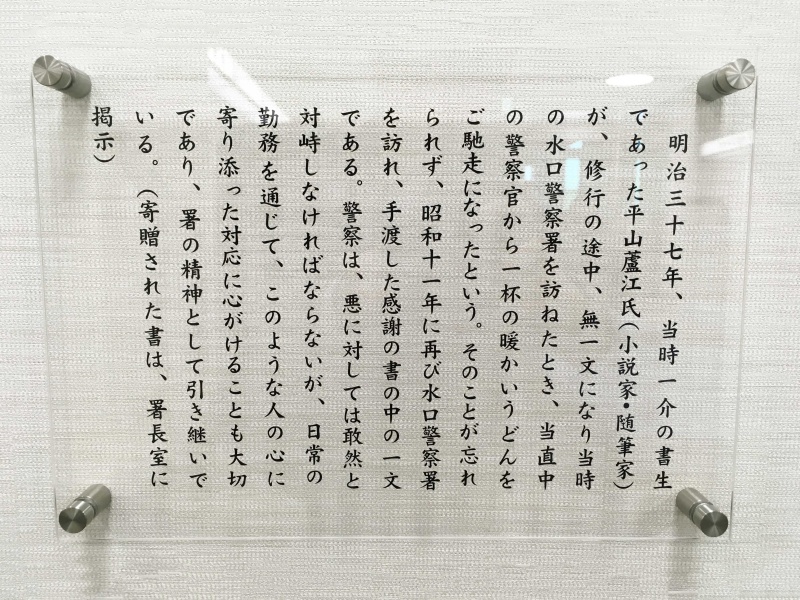 明治三十七年、当時一介の書生
であった平山蘆江氏(小説家・随筆家)
が、修行の途中、無一文になり当時
の水口警察署を訪ねたとき、当直中
の警察官から一杯の暖かいうどんを
ご馳走になったという。そのことが忘れ
られず、昭和十一年に再び水口警察署
を訪れ、手渡した感謝の書の中の一文
である。警察は、悪に対しては敢然と
対峙しなければならないが、日常の
勤務を通じて、このような人の心に
寄り添った対応に心がけることも大切
であり、署の精神として引き継いで
いる。(寄贈された書は、署長室に
掲示)